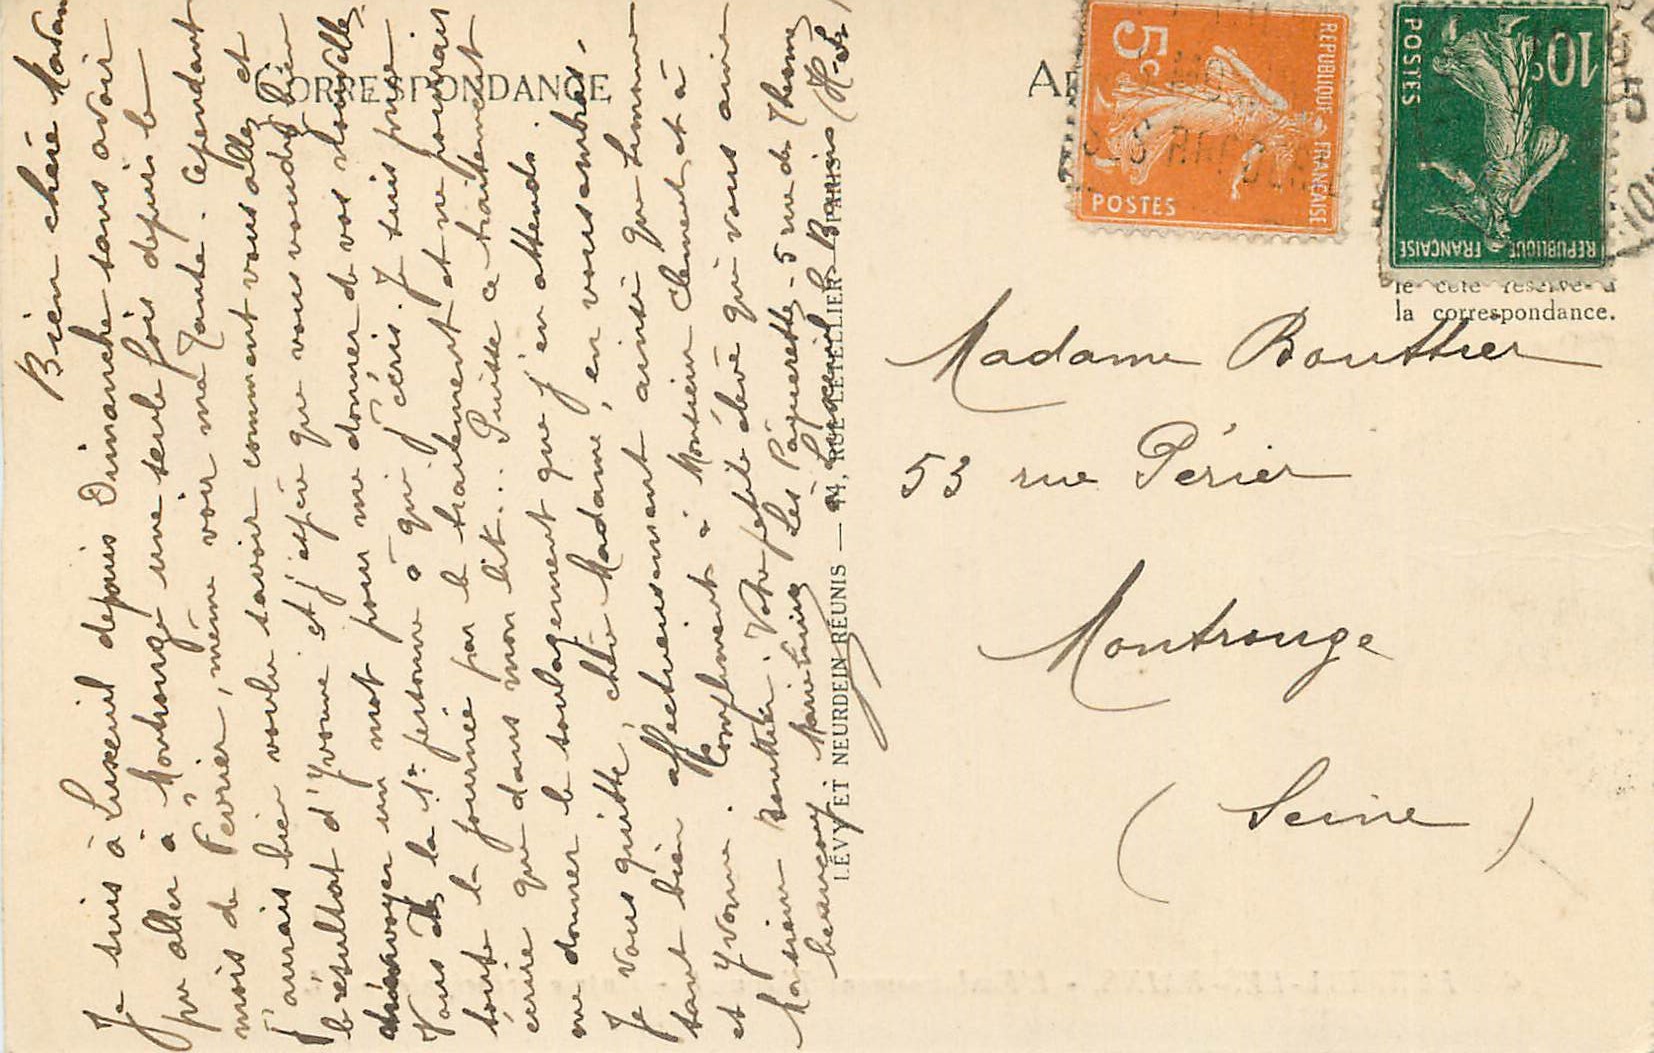 CORRESPONDANCE
Bien chère Madame
Je suis à Luxeuil depuis Dimanche sans avoir
pu aller à Montrouge une seule fois depuis le
mois de Février, même voir ma Tante. Cependant
j'aurais bien voulu savoir comment vous allez et
le résultat d'Yvonne et j'espère que vous voudrez bien
envoyer un mot pour me donner de vos nouvelles.
Vous la 1re personne à qui j'écris. Je suis prise
toute la journée par le traitement et ne pourrais
écrire que dans mon lit... Puisse ce traitement
me donner le soulagement que j'en attends.
Je vous quitte, chère Madame, en vous embras.
sant bien affectueusement ainsi que Simonne
et Yvonne. Compliments à Monsieur Clément et à
Monsieur Bouttier. Votre petite élève qui vous aime
beaucoup Marie Louise Les Pâquerettes - 5 rue des Thermes
à Luxeuil les Bains (Hte-S.)
LÉVY ET NEURDEIN RÉUNIS — 44, RUE LETELLIER - PARIS
RÉPUBLIQUE FRANÇAISE
5c
POSTES
RÉPUBLIQUE FRANÇAISE
10c
POSTES
le côté réservé à
la correspondance.
Madame Bouttier
53 rue Périer
Montrouge
(Seine)